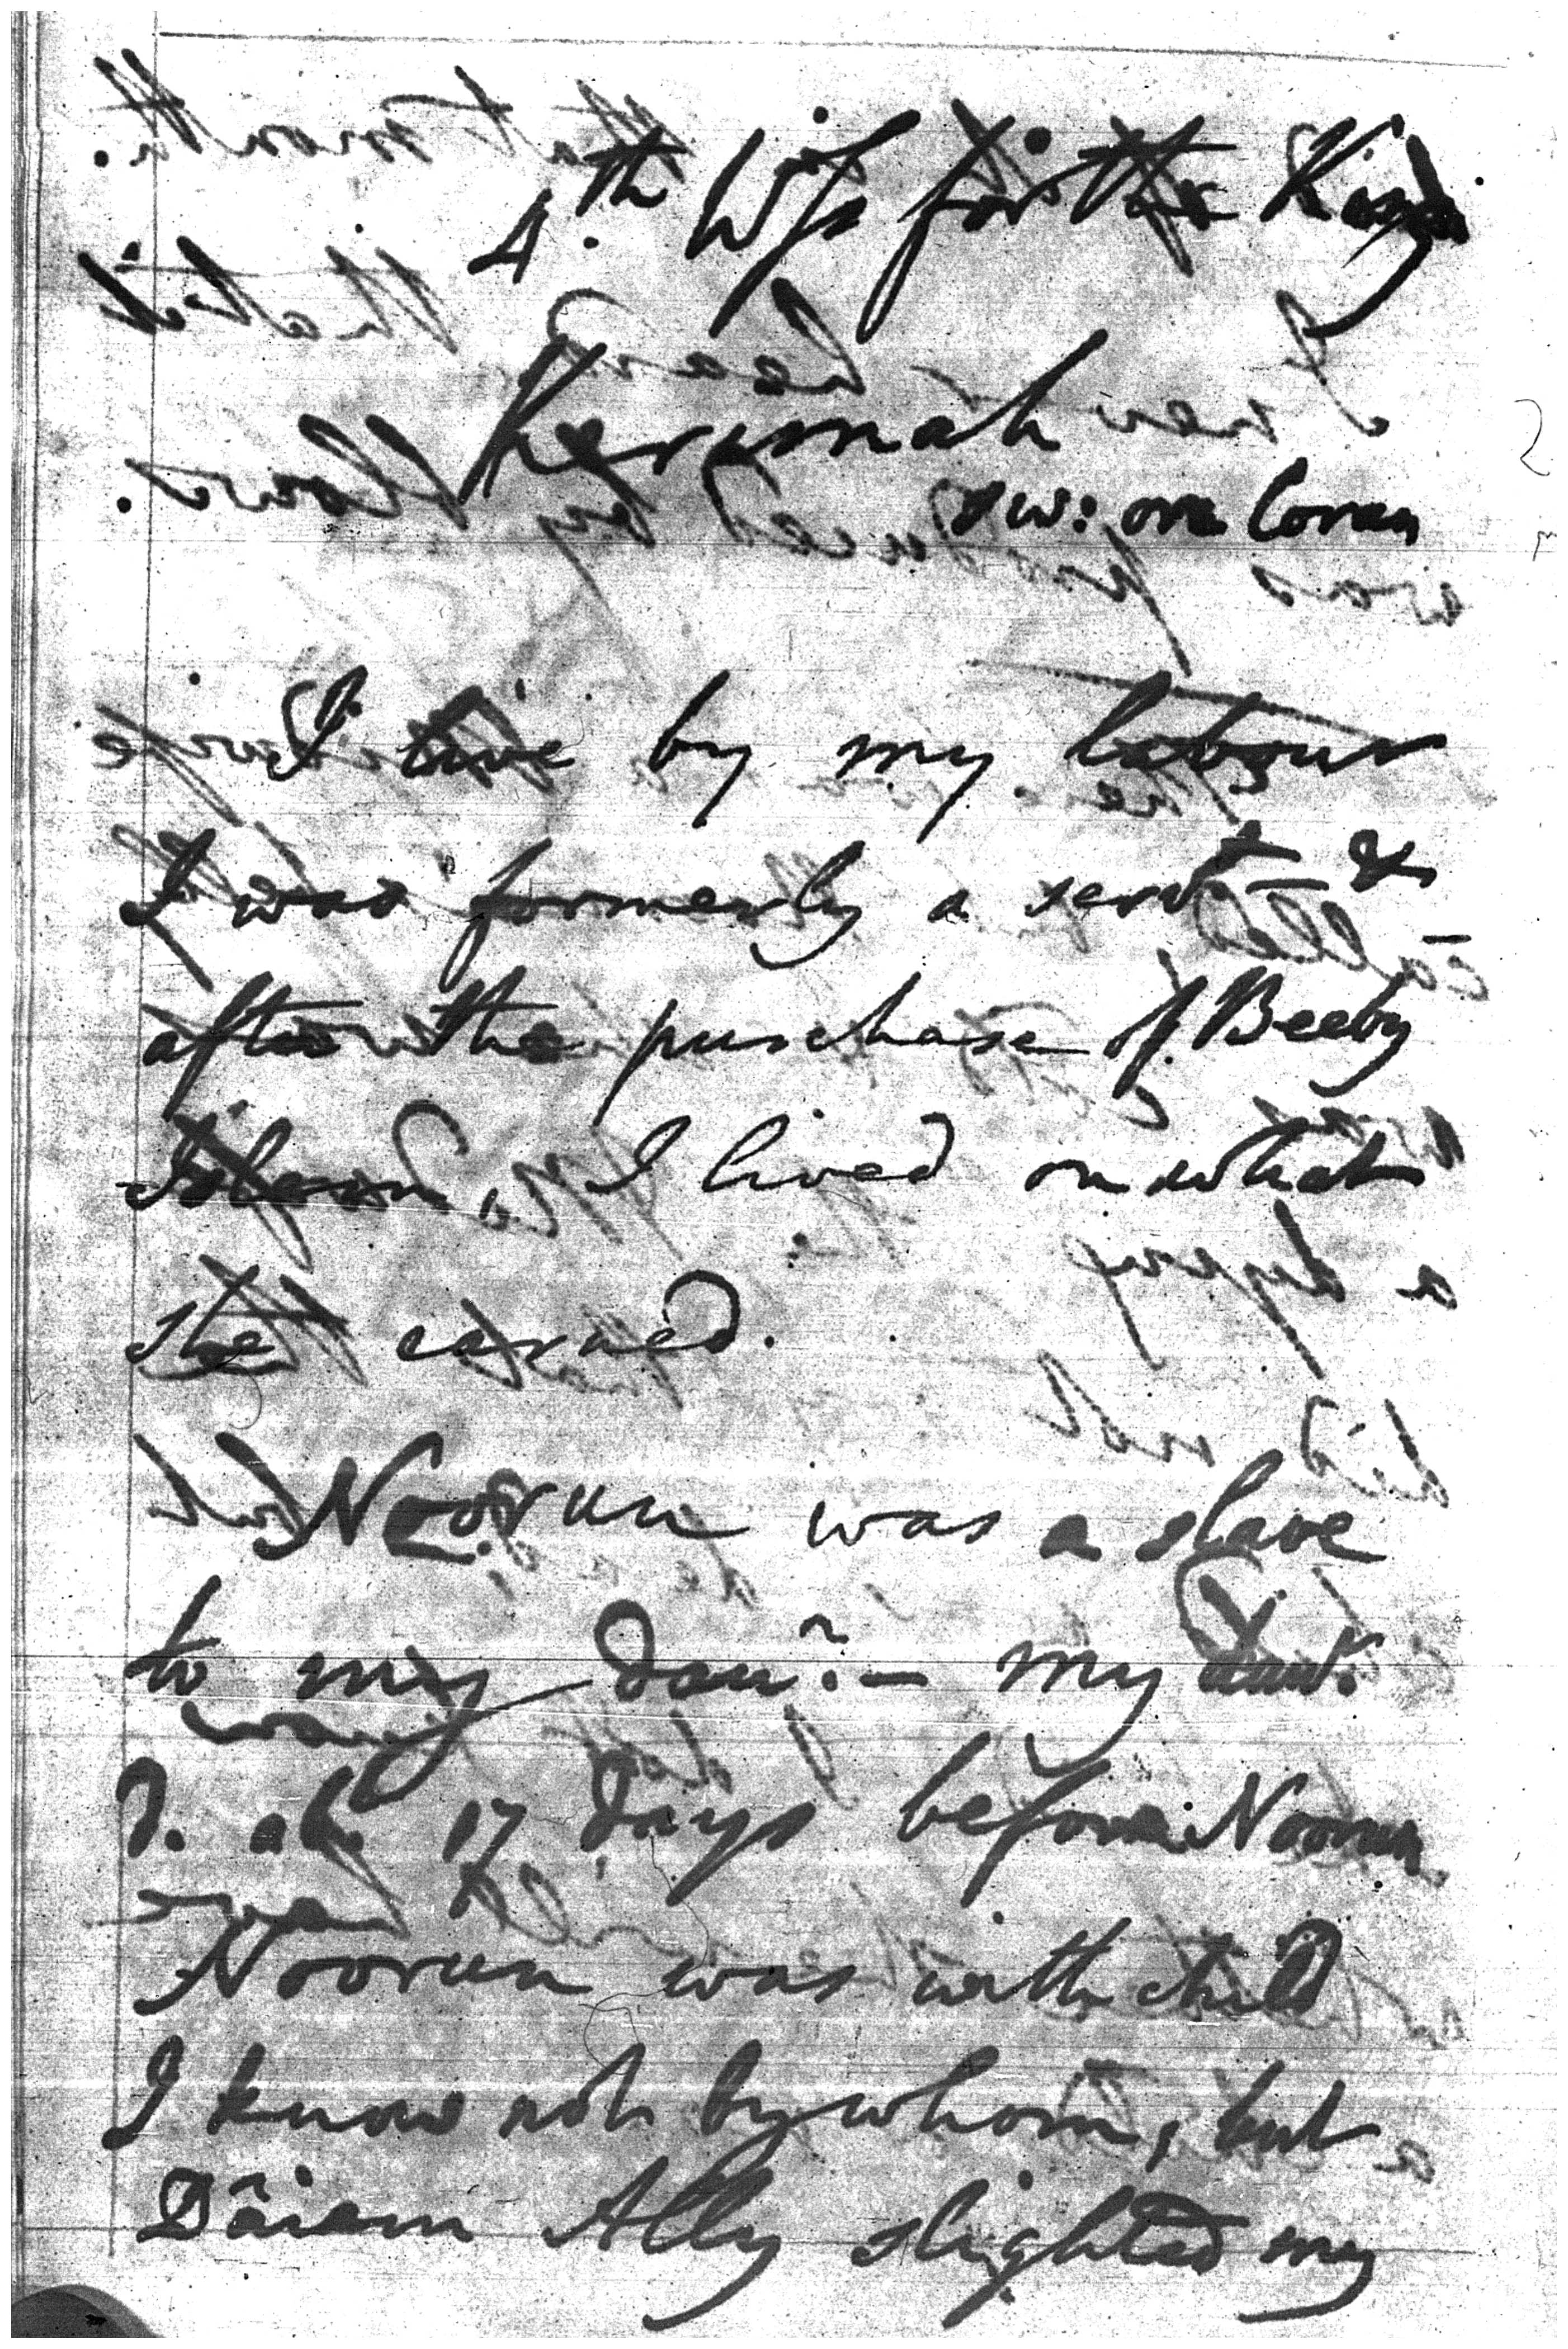 4.th Wit. for the King
Kerimah
sw: on Coran
I live by my labour
I was formerly a servt. &
after the purchase of Beeby
I lived on what
she earned.
Noorun was a slave
to my daur. – my daur.
D. abt. 17 days before Noorun
Noorun was with child
I know not by whom, but
Dâiem Ally slighted my